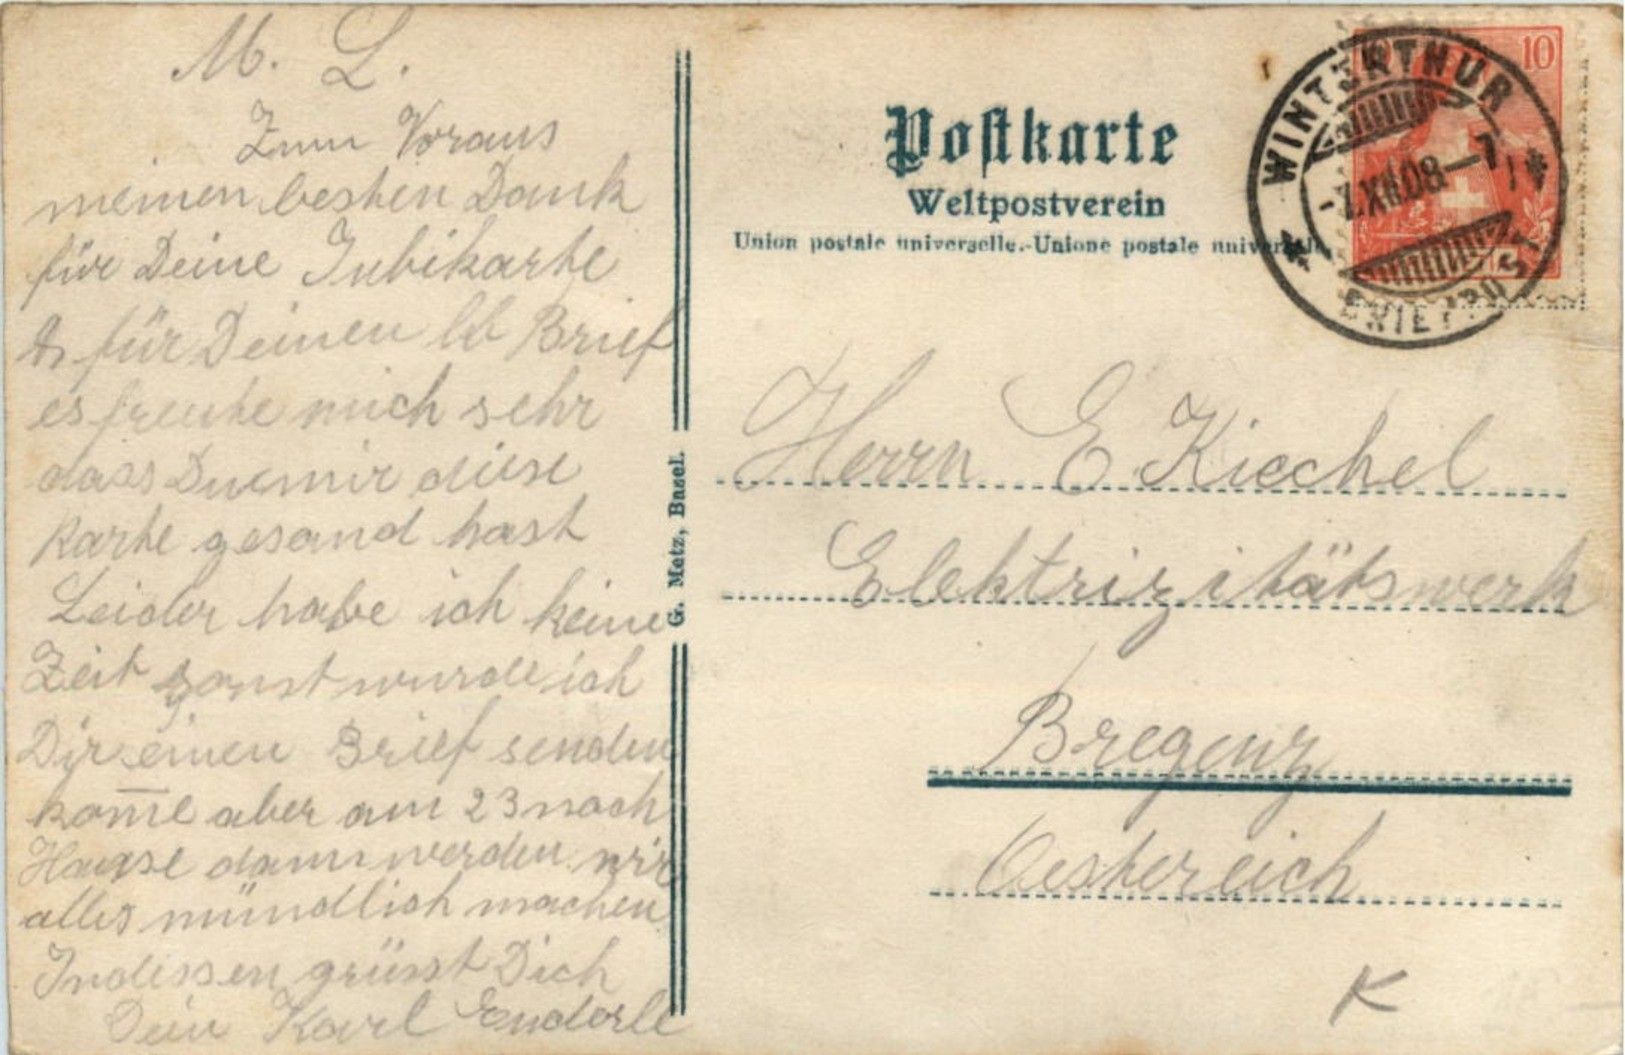 M. L.
Zum Voraus
meinen besten Dank
für Deine Jubikarte
& für Deinen lb Brief
es freute mich sehr
dass Du mir diese
Karte gesand hast
Leider habe ich keine
Zeit sonst wurde ich
Dir einen Brief senden
kom̅e aber am 23 nach
Hause dann werden wir
alles mündlich machen
Indissen grüsst Dich
Dein Karl Enderle
G. Metz, Basel.
Postkarte
Weltpostverein
Union postale universelle.-Unione postale universale
10
WINTERTHUR
-7.XII.08.-7
BRIEFPOST
Herrn E. Kiechel
Elektrizitätswerk
Bregenz
Oestereich
K